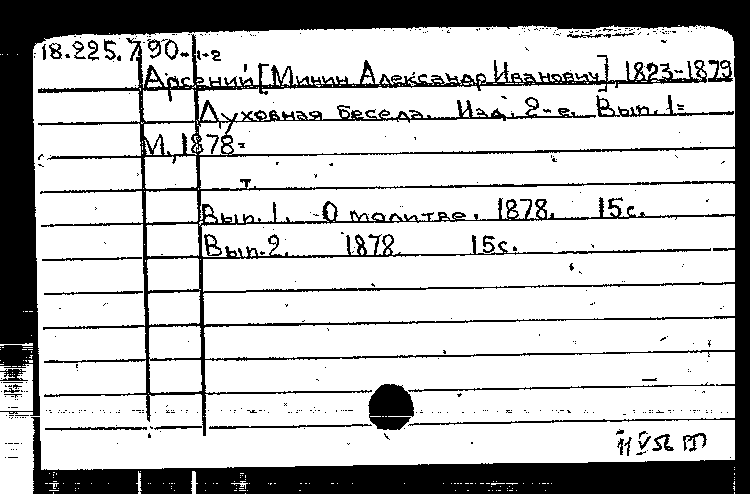 18.225.790-1-2
Арсений [Минин Александр Иванович], 1823-1879
Духовная беседа. Изд. 2-е. Вып. 1=
М., 1878=
т.
Вып. 1. О молитве. 1878. 15с.
Вып. 2. 1878 15с.
11 V 56